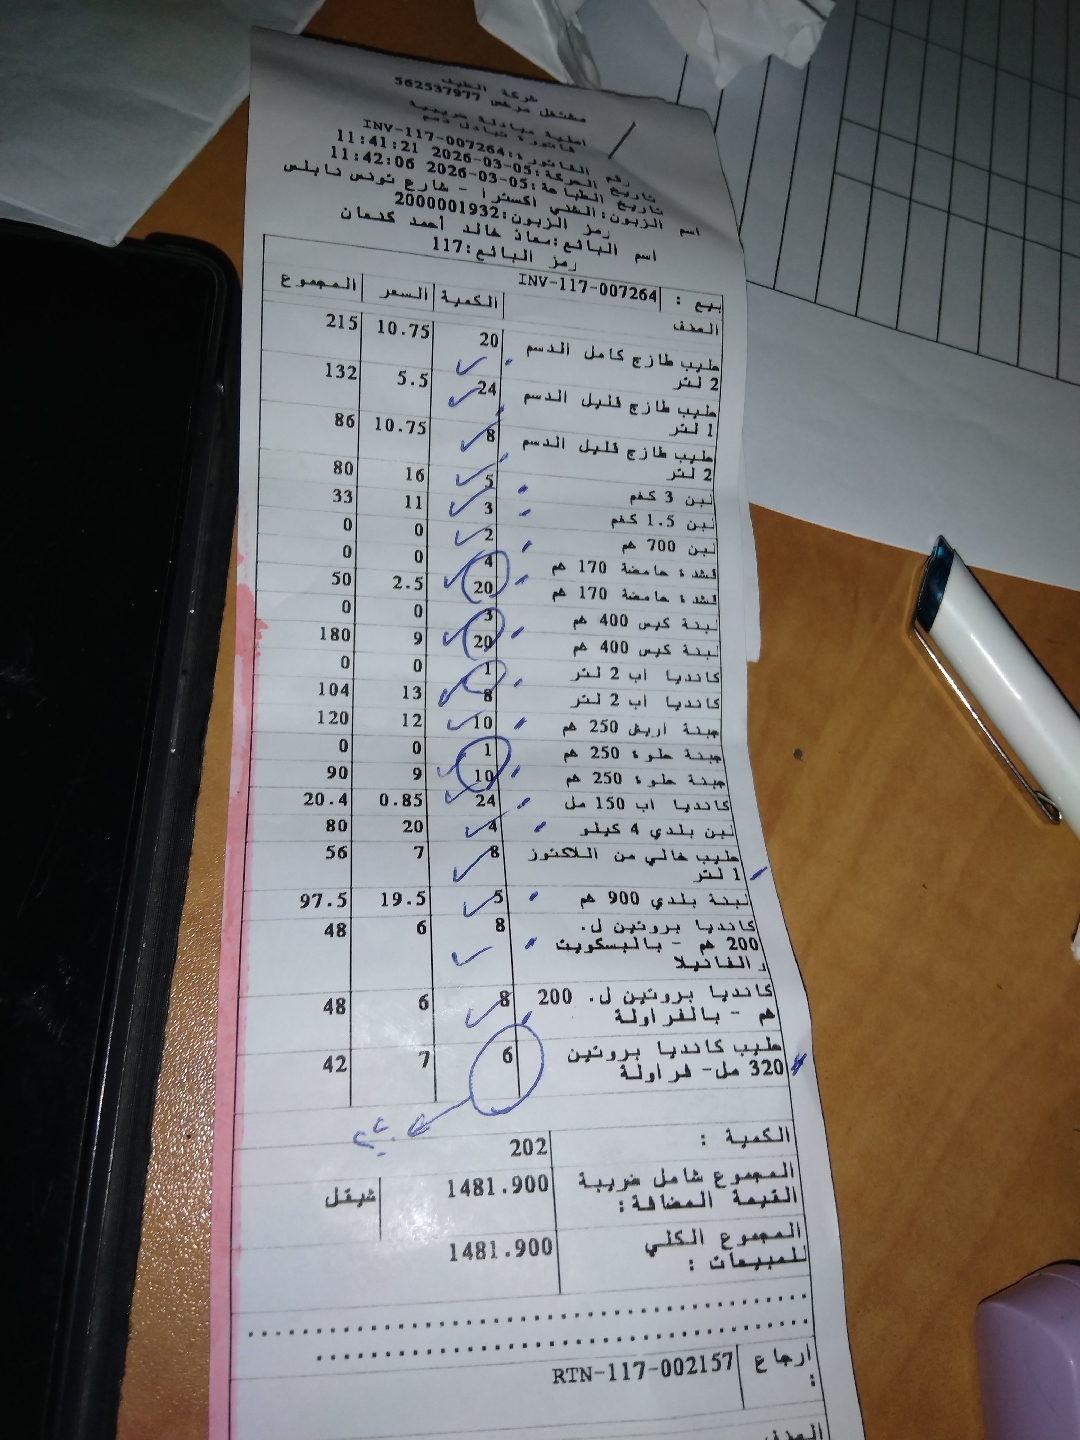 شركة الطيف
مشتغل مرخص 562537977
اصلية مبادلة ضريبية
فاتورة تبادل دسم
رقم الفاتورة:INV-117-007264
تاريخ الحركة:2026-03-05 11:41:21
تاريخ الطباعة:2026-03-05 11:42:06
اسم الزبون: الغني اكسترا - شارع تونس نابلس
رمز الزبون:2000001932
اسم البائع:معاذ خالد أحمد كنعان
رمز البائع:117
بيع : INV-117-007264
الصنف الكمية السعر المجموع
حليب طازج كامل الدسم 20 10.75 215
2 لتر
حليب طازج قليل الدسم 24 5.5 132
1 لتر
حليب طازج قليل الدسم 8 10.75 86
2 لتر
لبن 3 كغم 5 16 80
لبن 1.5 كغم 3 11 33
لبن 700 غم 2 0 0
قشدة حامضة 170 غم 4 0 0
قشدة حامضة 170 غم 20 2.5 50
لبنة كيس 400 غم 3 0 0
لبنة كيس 400 غم 20 9 180
كانديا اب 2 لتر 1 0 0
كانديا اب 2 لتر 8 13 104
جبنة اريش 250 غم 10 12 120
جبنة حلوة 250 غم 1 0 0
جبنة حلوة 250 غم 10 9 90
كانديا اب 150 مل 24 0.85 20.4
لبن بلدي 4 كيلو 4 20 80
حليب خالي من اللاكتوز 8 7 56
1 لتر
لبنة بلدي 900 غم 5 19.5 97.5
كانديا بروتين ل. 8 6 48
200 غم - بالبسكويت
و الفانيلا
كانديا بروتين ل. 200 8 6 48
غم - بالفراولة
حليب كانديا بروتين 6 7 42
320 مل- فراولة
الكمية : 202
المجموع شامل ضريبة 1481.900 شيقل
القيمة المضافة:
المجموع الكلي 1481.900
للمبيعات :
ارجاع RTN-117-002157
:
الصنف